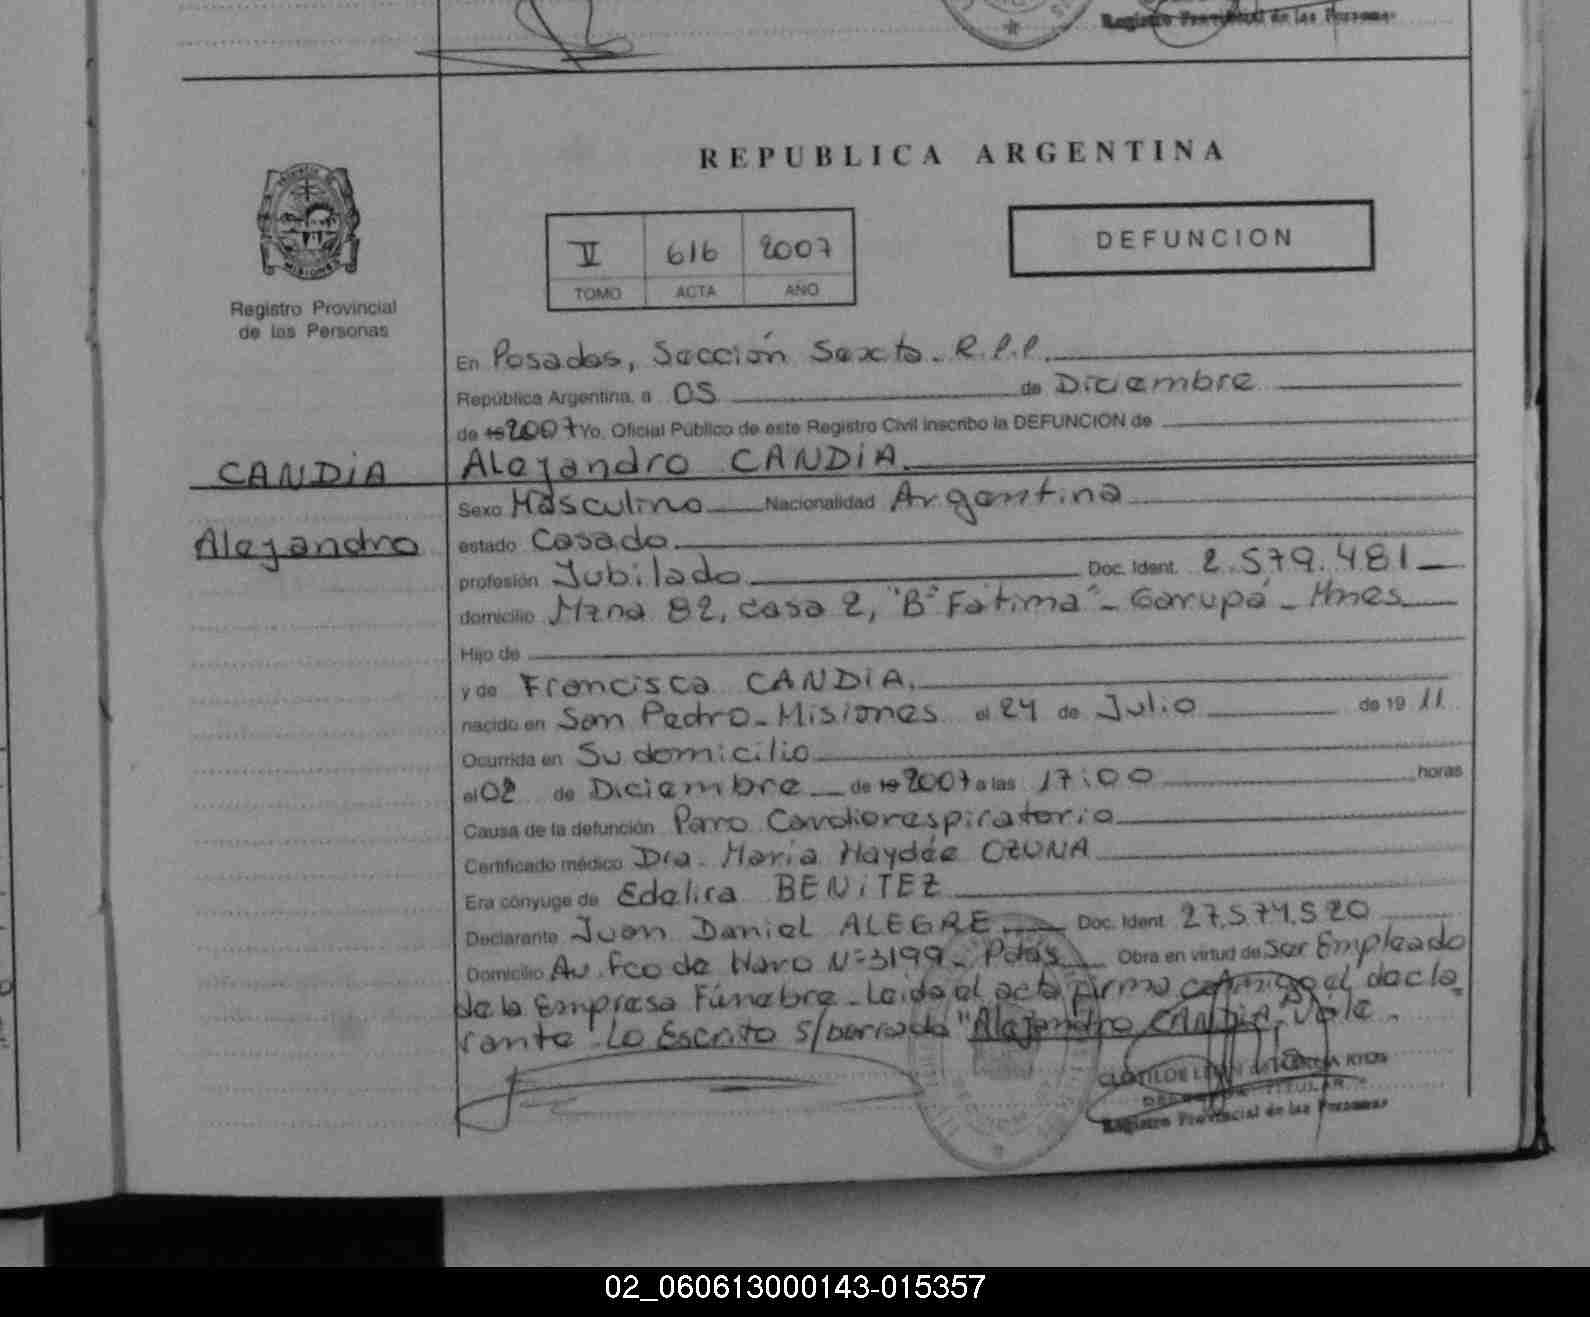 Registro Provincial de las Personas
REPUBLICA ARGENTINA
MISIONES
Registro Provincial
de las Personas
V 616 2007
TOMO ACTA AÑO
DEFUNCION
En Posadas, Sección Sexta. R.P.P.
República Argentina, a 05 de Diciembre
de 19 2007 Yo, Oficial Público de este Registro Civil inscribo la DEFUNCION de
CANDIA
Alejandro
Alejandro CANDIA
Sexo Masculino Nacionalidad Argentina
estado Casado
profesión Jubilado Doc. Ident. 2.579.481
domicilio Mzna 82, casa 2, "B° Fátima" - Garupá - Mnes
Hijo de
y de Francisca CANDIA.
nacido en San Pedro - Misiones el 24 de Julio de 19 11
Ocurrida en Su domicilio
el 02 de Diciembre de 19 2007 a las 17:00 horas
Causa de la defunción Paro Cardiorespiratorio
Certificado médico Dra. María Haydée OZUNA
Era cónyuge de Edelira BENITEZ
Declarante Juan Daniel ALEGRE Doc. Ident. 27.574.520
Domicilio Av. Fco de Haro N° 3199 - Pdas Obra en virtud de Ser Empleado
de la Empresa Fúnebre - Leida el acta firma conmigo el decla
rante. Lo Escrito s/borrado "Alejandro CANDIA" Vale.
TITULAR
Registro Provincial de las Personas
02_060613000143-015357